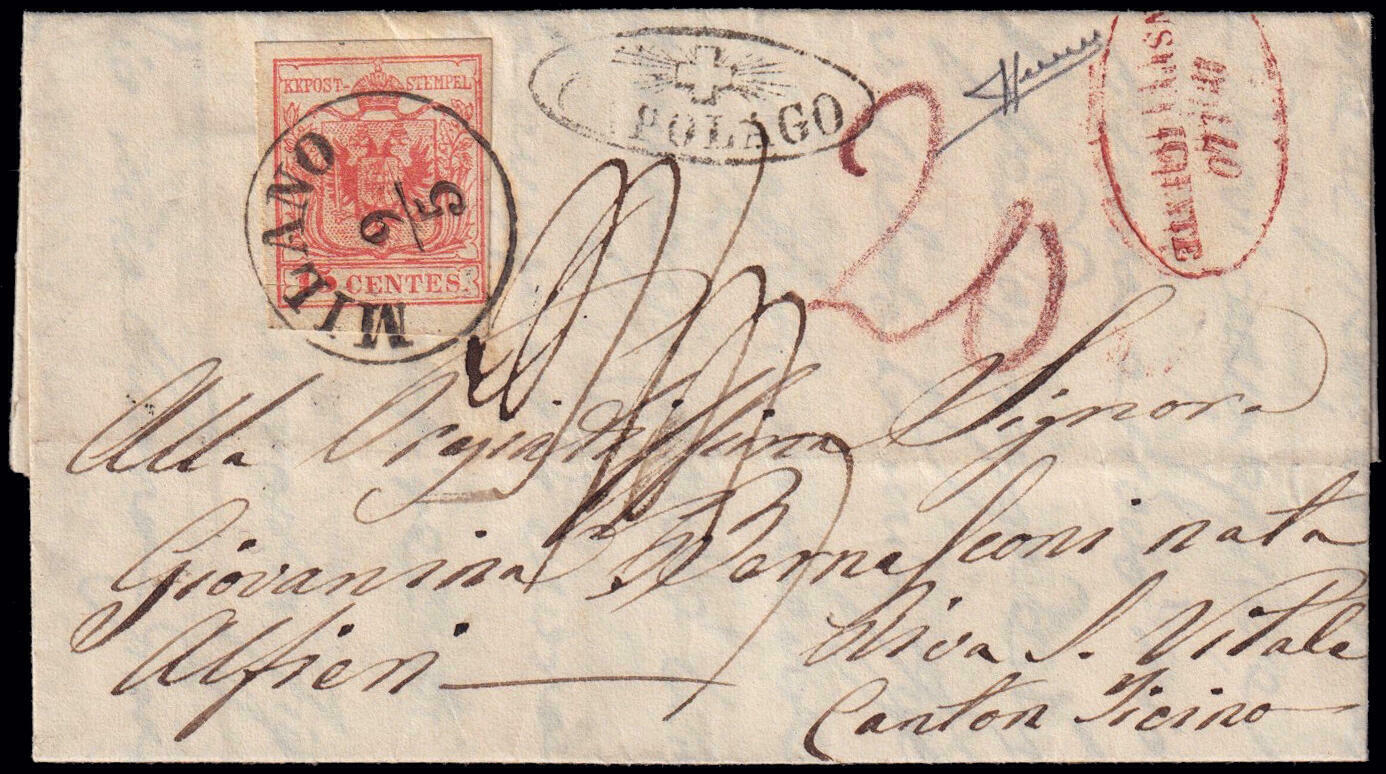 KKPOST-STEMPEL
15 CENTES.
MILANO
9/5
CAPOLAGO
20
Alla Signora
Giovanina Bernasconi nata
Alfieri
Riva S. Vitale
Canton Ticino